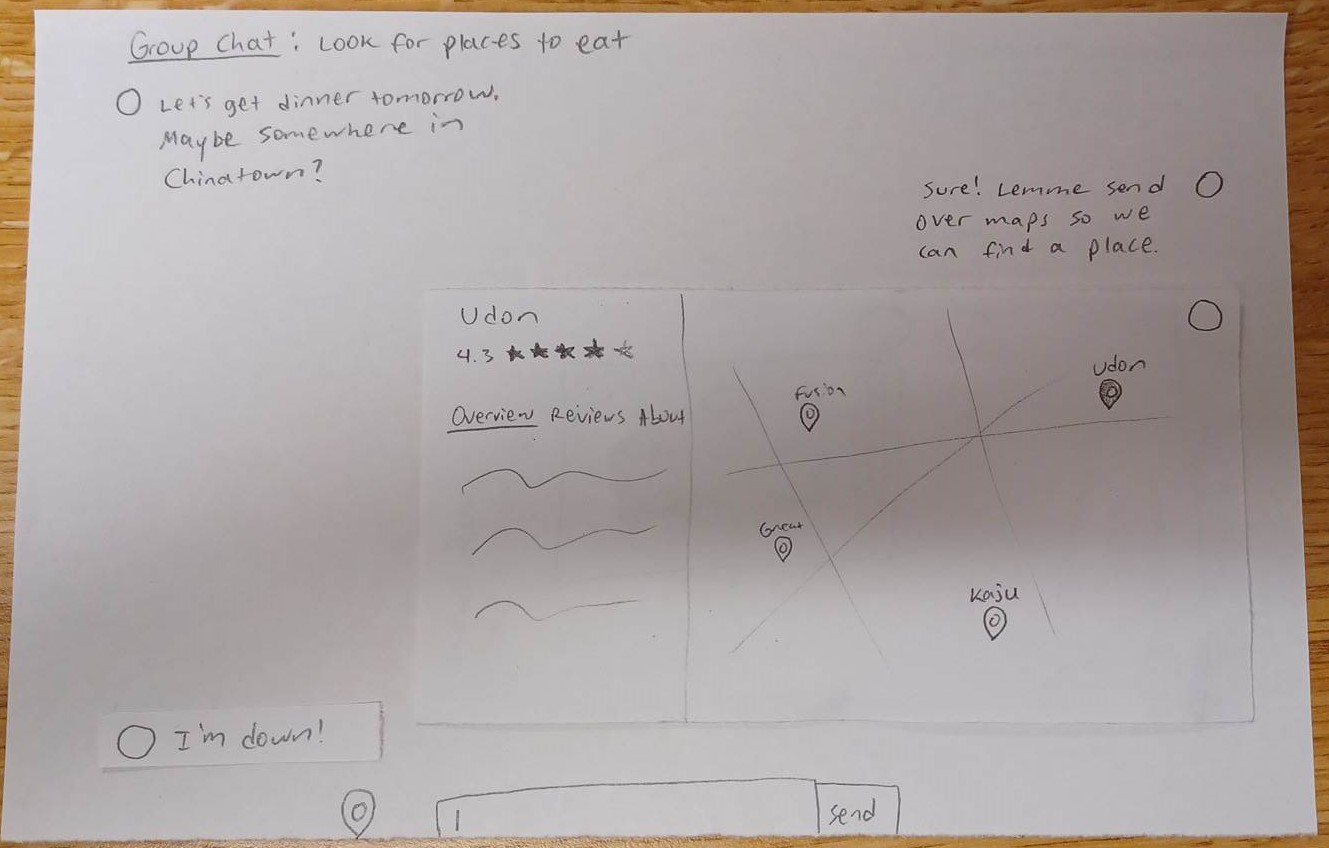 Group Chat: Look for places to eat
Let's get dinner tomorrow.
Maybe somewhere in
Chinatown?
Sure! Lemme send
over maps so we
can find a place.
Udon
4.3
Overview Reviews About
Fusion
Udon
Great
Kaju
I'm down!
Send